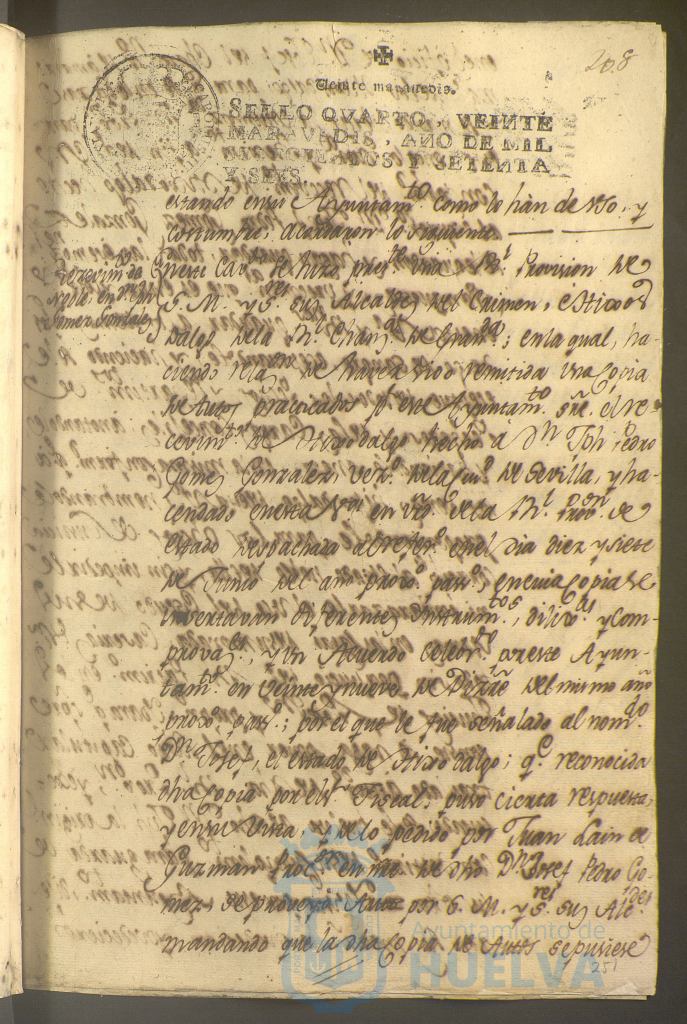 208
Veinte maravedis.
SELLO QVARTO, VEINTE
MARAVEDIS, AÑO DE MIL
SETECIENTOS Y SETENTA
Y SEIS.
estando en su Ayuntam.to como lo han de Vso, y
costumbre; acordaron lo siguiente
Recevim.to de
Noble en D.n Jph
Gomez Gonzalez
En este Cav.do se hizo pres.te una R.l Provision de
S. M. y S.res sus Alcaldes del Crimen, e Hixos
dalgo de la R.l Chan.a de Gran.da; en la qual, ha-
ciendo relaz.on de haver sido remitida una Copia
de Autos practicados p.r este Ayuntam.to sre. el re-
cevim.to de Hixo dalgo hecho a D.n Jph Pedro
Gomez Gonzalez, vez.o de la Ciu.d de Sevilla, y ha-
cendado en esta V.a en v.d de la R.l Prov.on de
estado despachada al refer.o en el dia diez y siete
de Junio del año prox.o pas.o, en cuia Copia se
insertavan diferentes Instrum.tos, dilix.as y Com-
prova.es, y un Acuerdo Celebr.do por este Ayun-
tam.to en veinte y nueve de Diz.re del mismo año
prox.o pas.o; por el que le fue señalado al nom.do
D.n Josef, el estado de Hixo dalgo; q.e reconocida
dha Copia por el S.r Fiscal, puso cierta respuesta,
y en su Vista, y de lo pedido por Juan Lain de
Guzman Proc.or en nre. de dho D.n Josef Pedro Go-
mez, se proveyó Auto por S. M. y S.res sus Alc.des
mandando que la dha Copia de Autos se pusiese
251
Ayuntamiento de
HUELVA